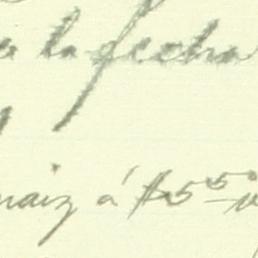 la fecha
maiz á $5.50